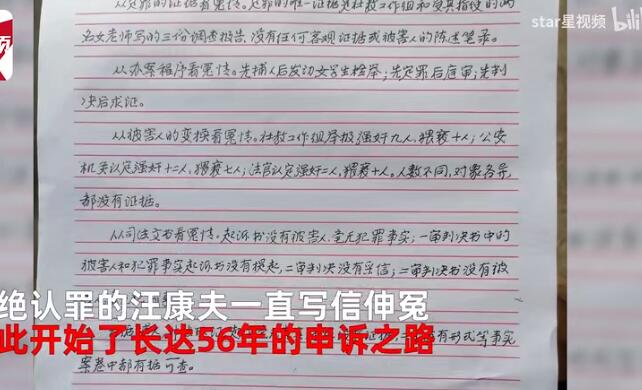 star星视频 bilibili
从定罪的证据看冤情。定罪的唯一证据是社教工作组和受其指使的两
名女老师写的三份调查报告,没有任何客观证据或被害人的陈述笔录。
从办案程序看冤情。先捕人后发动女学生检举;先定罪后庭审;先判
决后求证。
从被害人的变换看冤情。社教工作组举报强奸九人,猥亵十人;公安
机关认定强奸十二人,猥亵七人;法官认定强奸二人,猥亵十人。人数不同,对象各异
都没有证据。
从司法文书看冤情。起诉书没有被害人,毫无犯罪事实;一审判决书中的
被害人和犯罪事实起诉书没有提起,二审判决没有采信;二审判决书没有被
绝认罪的汪康夫一直写信伸冤
此开始了长达56年的申诉之路
有形式等事实
案卷中都有据可查。